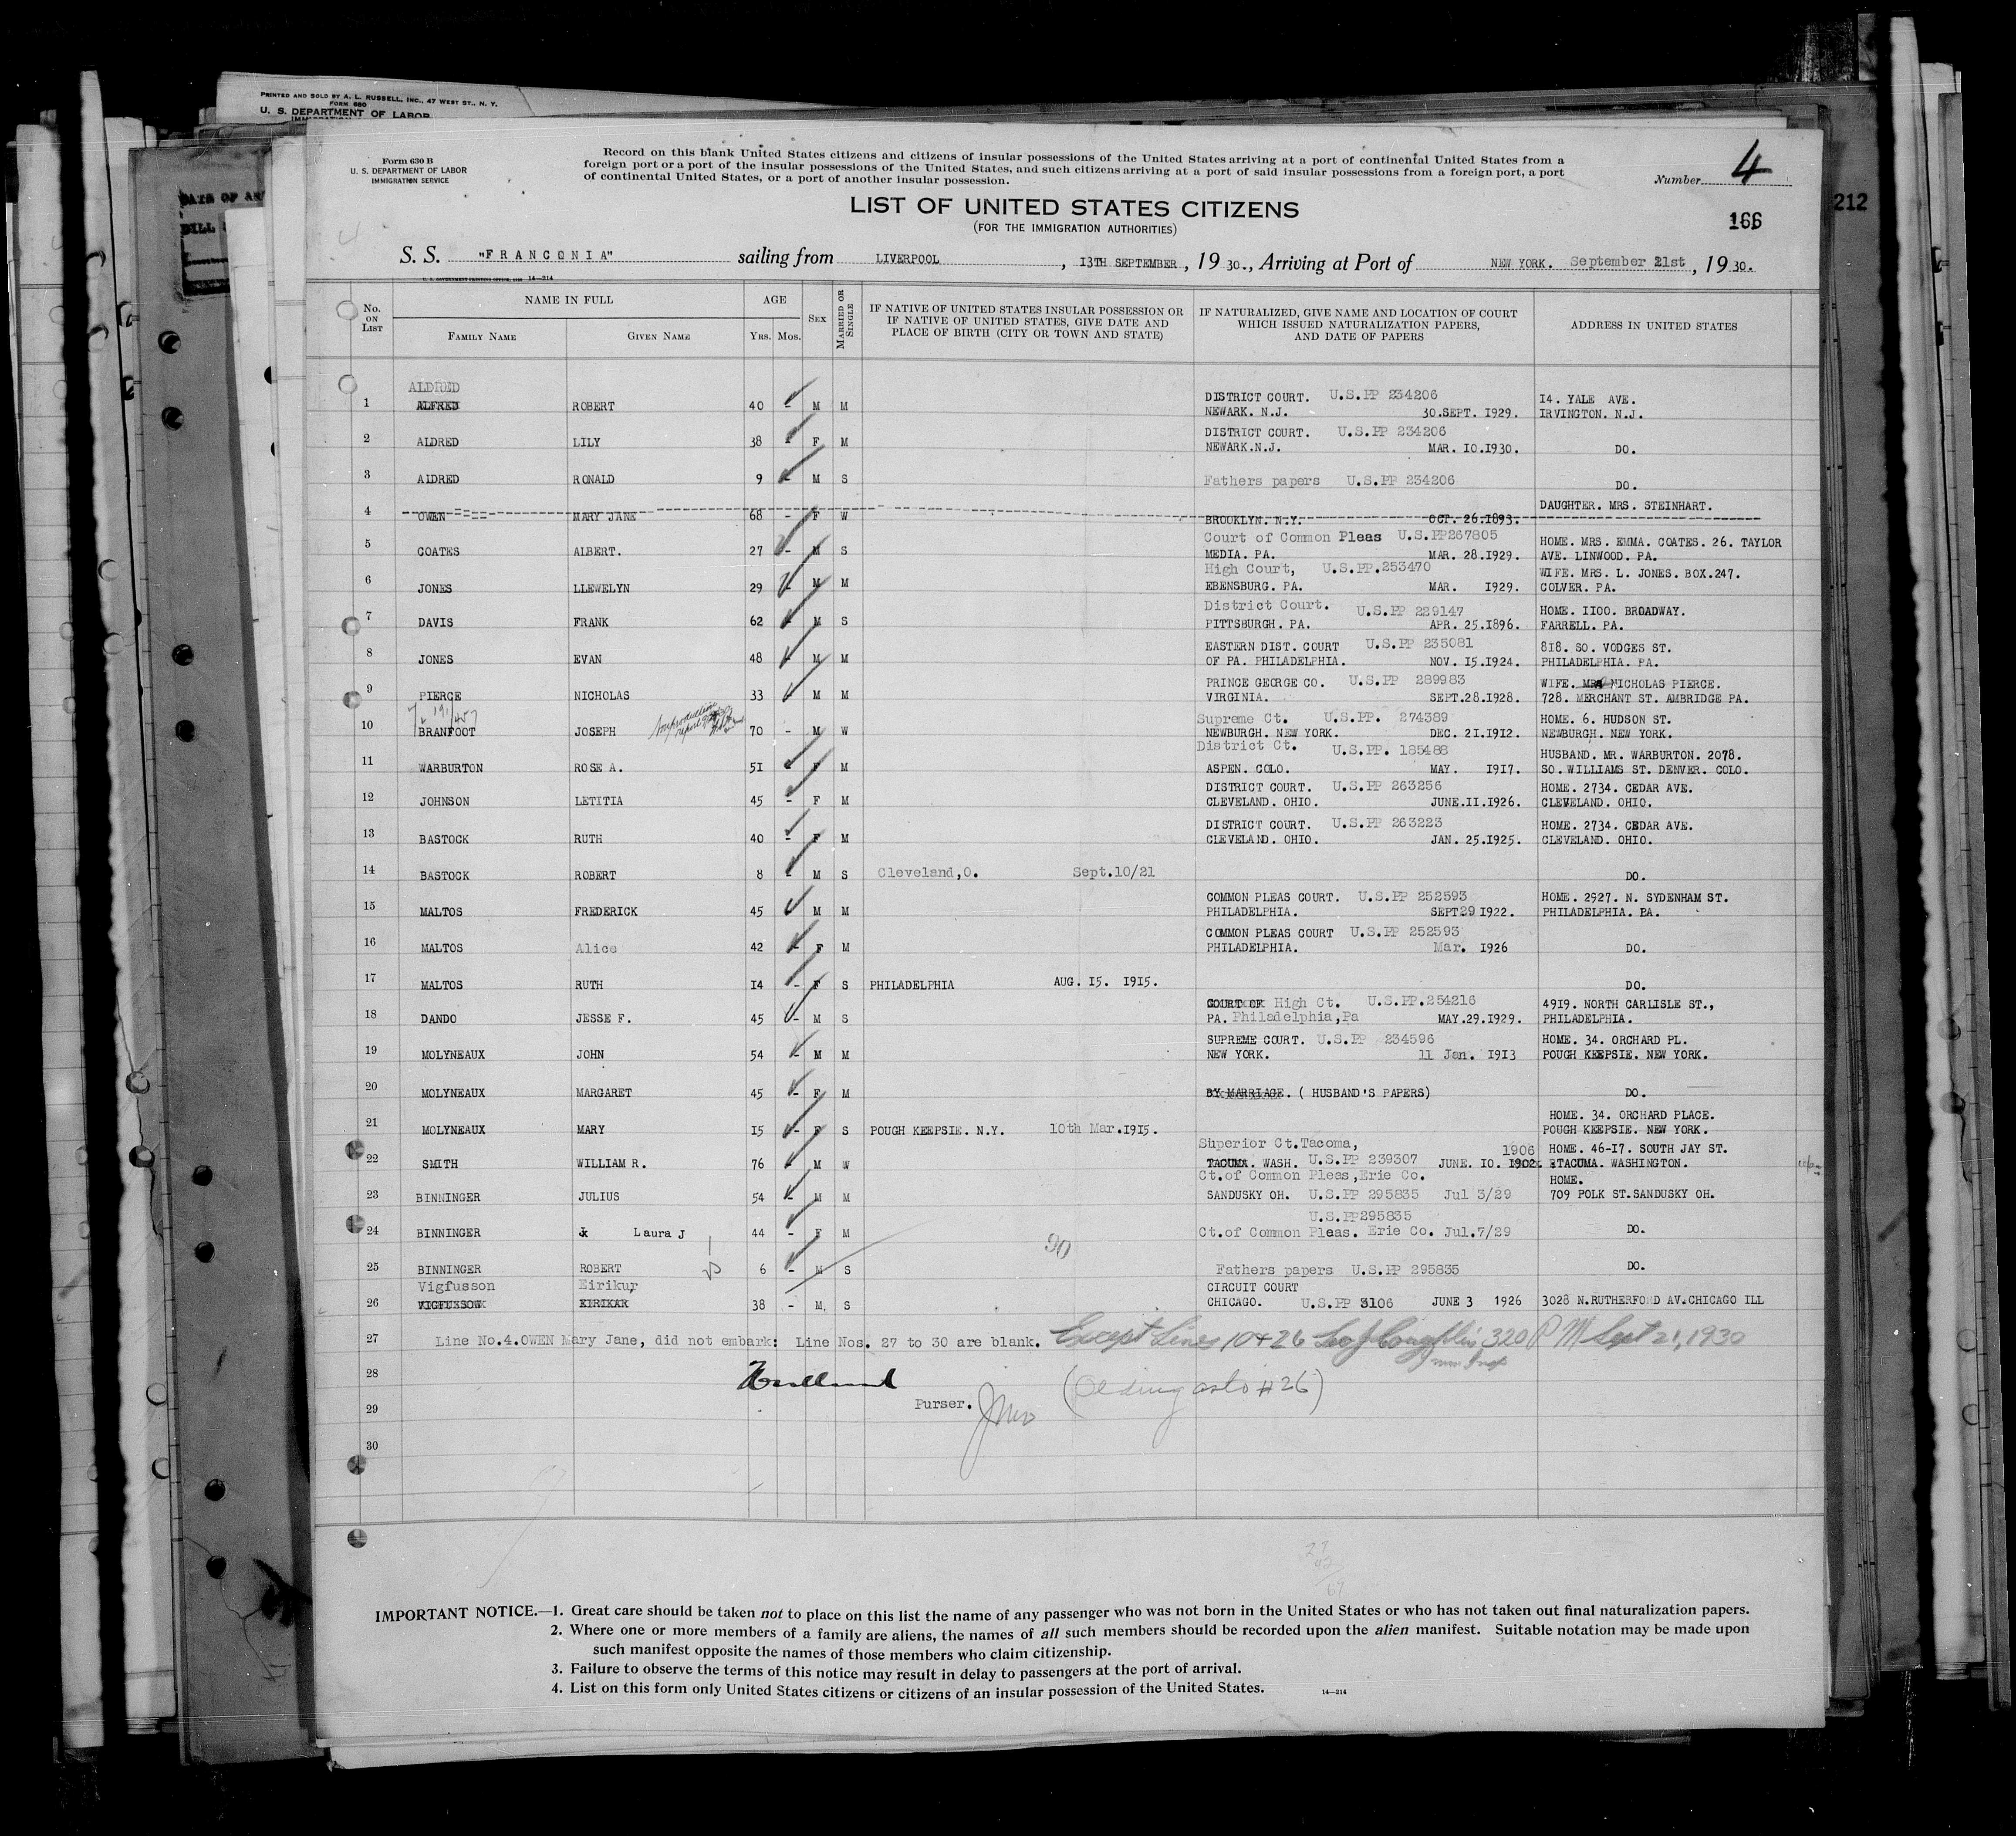 PRINTED AND SOLD BY A. L. RUSSELL, INC., 47 WEST ST., N. Y.
FORM 680
U. S. DEPARTMENT OF LABOR
212
Form 630 B
U. S. DEPARTMENT OF LABOR
IMMIGRATION SERVICE
Record on this blank United States citizens and citizens of insular possessions of the United States arriving at a port of continental United States from a
foreign port or a port of the insular possessions of the United States, and such citizens arriving at a port of said insular possessions from a foreign port, a port
of continental United States, or a port of another insular possession.
Number 4
166
LIST OF UNITED STATES CITIZENS
(FOR THE IMMIGRATION AUTHORITIES)
S. S. "FRANCONIA" sailing from LIVERPOOL, 13TH SEPTEMBER, 1930., Arriving at Port of NEW YORK. September 21st, 1930.
No. ON LIST
NAME IN FULL
FAMILY NAME
GIVEN NAME
AGE
YRS. MOS.
SEX
MARRIED OR SINGLE
IF NATIVE OF UNITED STATES INSULAR POSSESSION OR
IF NATIVE OF UNITED STATES, GIVE DATE AND
PLACE OF BIRTH (CITY OR TOWN AND STATE)
IF NATURALIZED, GIVE NAME AND LOCATION OF COURT
WHICH ISSUED NATURALIZATION PAPERS,
AND DATE OF PAPERS
ADDRESS IN UNITED STATES
ALDRED DISTRICT COURT. U.S.PP 234206 14. YALE AVE.
1 ALFRED ROBERT 40 - M M NEWARK. N.J. 30.SEPT. 1929. IRVINGTON. N.J.
DISTRICT COURT. U.S.PP 234206
2 ALDRED LILY 38 - F M NEWARK.N.J. MAR. 10.1930. DO.
3 ALDRED RONALD 9 - M S Fathers papers U.S.PP 234206 DO.
DAUGHTER. MRS. STEINHART.
4 OWEN MARY JANE 68 - F W BROOKLYN. N.Y. OCT. 26.1893.
Court of Common Pleas U.S.PP267805 HOME. MRS. EMMA. COATES. 26. TAYLOR
5 COATES ALBERT. 27 - M S MEDIA. PA. MAR. 28.1929. AVE. LINWOOD. PA.
High Court, U.S.PP.253470 WIFE. MRS. L. JONES. BOX.247.
6 JONES LLEWELYN 29 - M M EBENSBURG. PA. MAR. 1929. COLVER. PA.
District Court. U.S.PP 229147 HOME. 1100. BROADWAY.
7 DAVIS FRANK 62 - M S PITTSBURGH. PA. APR. 25.1896. FARRELL. PA.
EASTERN DIST. COURT U.S.PP 235081 818. SO. VODGES ST.
8 JONES EVAN 48 - M M OF PA. PHILADELPHIA. NOV. 15.1924. PHILADELPHIA. PA.
PRINCE GEORGE CO. U.S.PP 289983 WIFE. MRS NICHOLAS PIERCE.
9 PIERCE NICHOLAS 33 - M M VIRGINIA. SEPT.28.1928. 728. MERCHANT ST. AMBRIDGE PA.
Supreme Ct. U.S.PP. 274389 HOME. 6. HUDSON ST.
10 BRANFOOT JOSEPH 70 - M W NEWBURGH. NEW YORK. DEC. 21.1912. NEWBURGH. NEW YORK.
District Ct. U.S.PP. 185488 HUSBAND. MR. WARBURTON. 2078.
11 WARBURTON ROSE A. 51 - F M ASPEN. COLO. MAY. 1917. SO. WILLIAMS ST. DENVER. COLO.
DISTRICT COURT. U.S.PP 263256 HOME. 2734. CEDAR AVE.
12 JOHNSON LETITIA 45 - F M CLEVELAND. OHIO. JUNE.11.1926. CLEVELAND. OHIO.
DISTRICT COURT. U.S.PP 263223 HOME. 2734. CEDAR AVE.
13 BASTOCK RUTH 40 - F M CLEVELAND. OHIO. JAN. 25.1925. CLEVELAND. OHIO.
14 BASTOCK ROBERT 8 - M S Cleveland,O. Sept.10/21 DO.
COMMON PLEAS COURT. U.S.PP 252593 HOME. 2927. N. SYDENHAM ST.
15 MALTOS FREDERICK 45 M M PHILADELPHIA. SEPT29 1922. PHILADELPHIA. PA.
COMMON PLEAS COURT U.S.PP 252593
16 MALTOS Alice 42 - F M PHILADELPHIA. Mar. 1926 DO.
17 MALTOS RUTH 14 - F S PHILADELPHIA AUG. 15. 1915. DO.
COURT OF High Ct. U.S.PP.254216 4919. NORTH CARLISLE ST.,
18 DANDO JESSE F. 45 - M S PA. Philadelphia,Pa MAY.29.1929. PHILADELPHIA.
SUPREME COURT. U.S.PP 234596 HOME. 34. ORCHARD PL.
19 MOLYNEAUX JOHN 54 - M M NEW YORK. 11 Jan. 1913 POUGH KEEPSIE. NEW YORK.
20 MOLYNEAUX MARGARET 45 - F M BY MARRIAGE. ( HUSBAND'S PAPERS) DO.
HOME. 34. ORCHARD PLACE.
21 MOLYNEAUX MARY 15 - F S POUGH KEEPSIE. N.Y. 10th Mar.1915. POUGH KEEPSIE. NEW YORK.
Superior Ct.Tacoma, 1906 HOME. 46-17. SOUTH JAY ST.
22 SMITH WILLIAM R. 76 - M W TACUMA. WASH. U.S.PP 239307 JUNE. 10. 1902. TACUMA. WASHINGTON.
Ct.of Common Pleas,Erie Co. HOME.
23 BINNINGER JULIUS 54 - M M SANDUSKY OH. U.S.PP 295835 Jul 3/29 709 POLK ST.SANDUSKY OH.
U.S.PP295835
24 BINNINGER Laura J 44 - F M Ct.of Common Pleas. Erie Co. Jul.7/29 DO.
90
25 BINNINGER ROBERT 6 - M S Fathers papers U.S.PP 295835 DO.
Vigfusson Eirikur CIRCUIT COURT
26 VIGFUSSOW EIRIKAR 38 - M. S CHICAGO. U.S.PP 3106 JUNE 3 1926 3028 N.RUTHERFORD AV.CHICAGO ILL
27 Line No.4.OWEN Mary Jane, did not embark: Line Nos. 27 to 30 are blank. Except Lines 10 & 26 320 P M Sept 21, 1930
28
Purser.
29
30
IMPORTANT NOTICE.—1. Great care should be taken not to place on this list the name of any passenger who was not born in the United States or who has not taken out final naturalization papers.
2. Where one or more members of a family are aliens, the names of all such members should be recorded upon the alien manifest. Suitable notation may be made upon
such manifest opposite the names of those members who claim citizenship.
3. Failure to observe the terms of this notice may result in delay to passengers at the port of arrival.
4. List on this form only United States citizens or citizens of an insular possession of the United States.
14—214